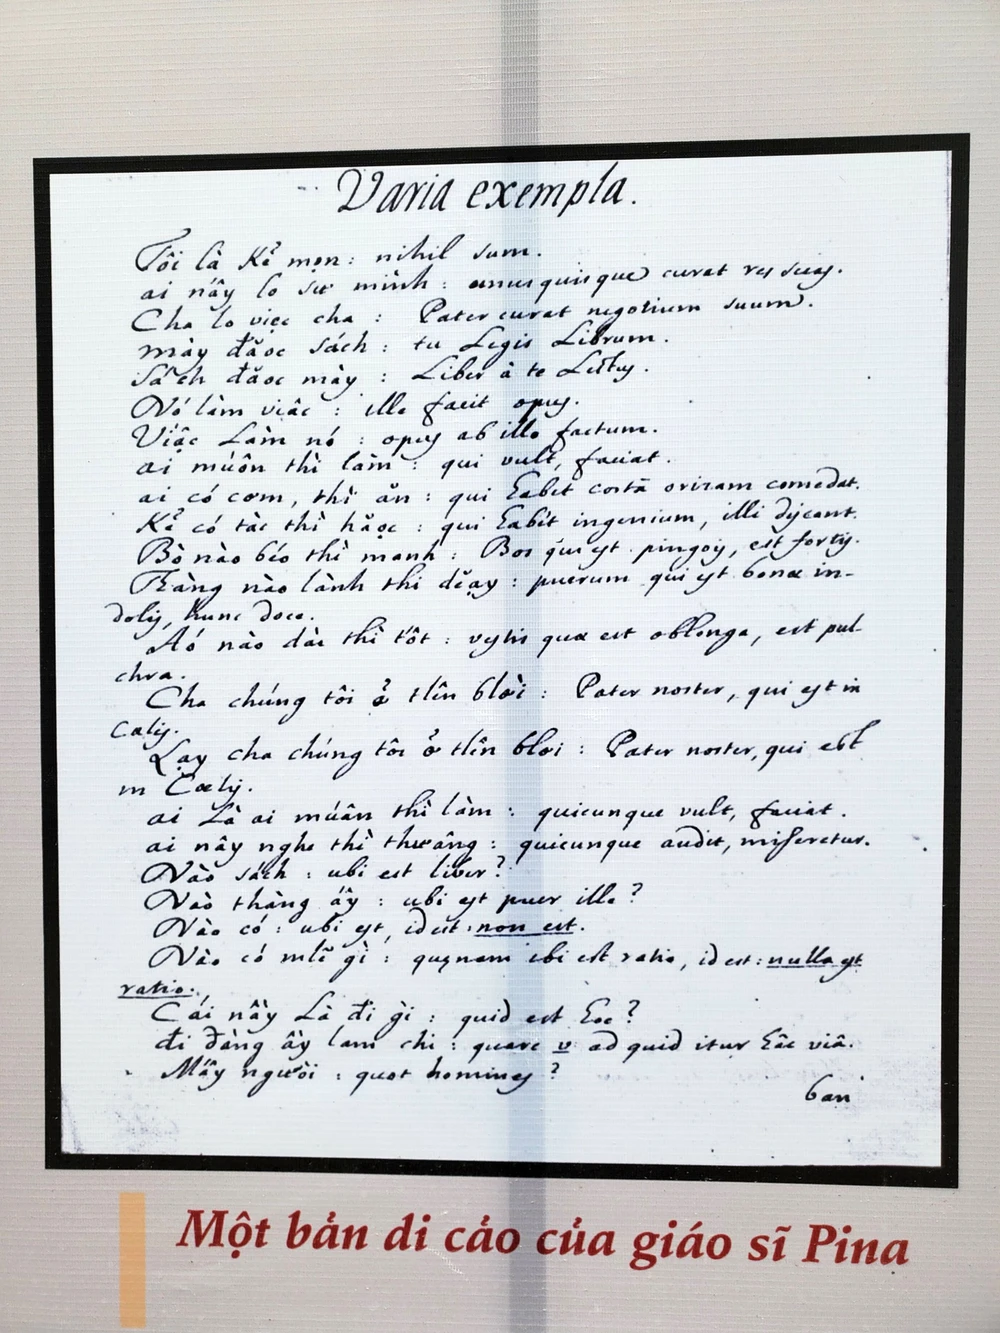 Varia exempla.
Tôi là Kẻ mọn: nihil sum.
ai nấy lo sự mình : unusquisque curat res suas.
Cha lo viẹc cha : Pater curat negotium suum.
mày đăọc sách : tu Legis Librum.
Sách đăọc mày : Liber à te Lectus.
Nó làm viâc : ille facit opus.
Viậc Làm nó : opus ab illo factum.
ai muấn thì làm : qui vult, faciat.
ai có cơm, thì ăn : qui habet coctã orizam comedat.
Kẻ có tàc thì hăọc : qui habet ingenium, illi discant.
Bò nào béo thì manh : Bos qui est pinguis, est fortis.
Thàng nào lành thi dĕạy : puerum qui est bonæ in-
dolis, hunc doce.
Áó nào dài thì tốt : vestis quæ est oblonga, est pul-
chra.
Cha chúng tôi ở tlên blời : Pater noster, qui est in
Cælis.
Lạy cha chúng tôi ở tlên blơi : Pater noster, qui est
in Cælis.
ai Là ai muấn thì làm : quicunque vult, faciat.
ai nấy nghe thì thương : quicunque audit, miseretur.
Nào sách : ubi est liber?
Nào thàng ấy : ubi est puer ille?
Nào có : ubi est, id est: non est.
Nào có mlẽ gì : quænam ibi est ratio, id est: nulla est
ratio.
Cái nầy Là đi gì : quid est hoc?
đi đàng ầy lam chi : quare v ad quid itur hâc viâ.
Mấy người : quot homines?
ban
Một bản di cảo của giáo sĩ Pina